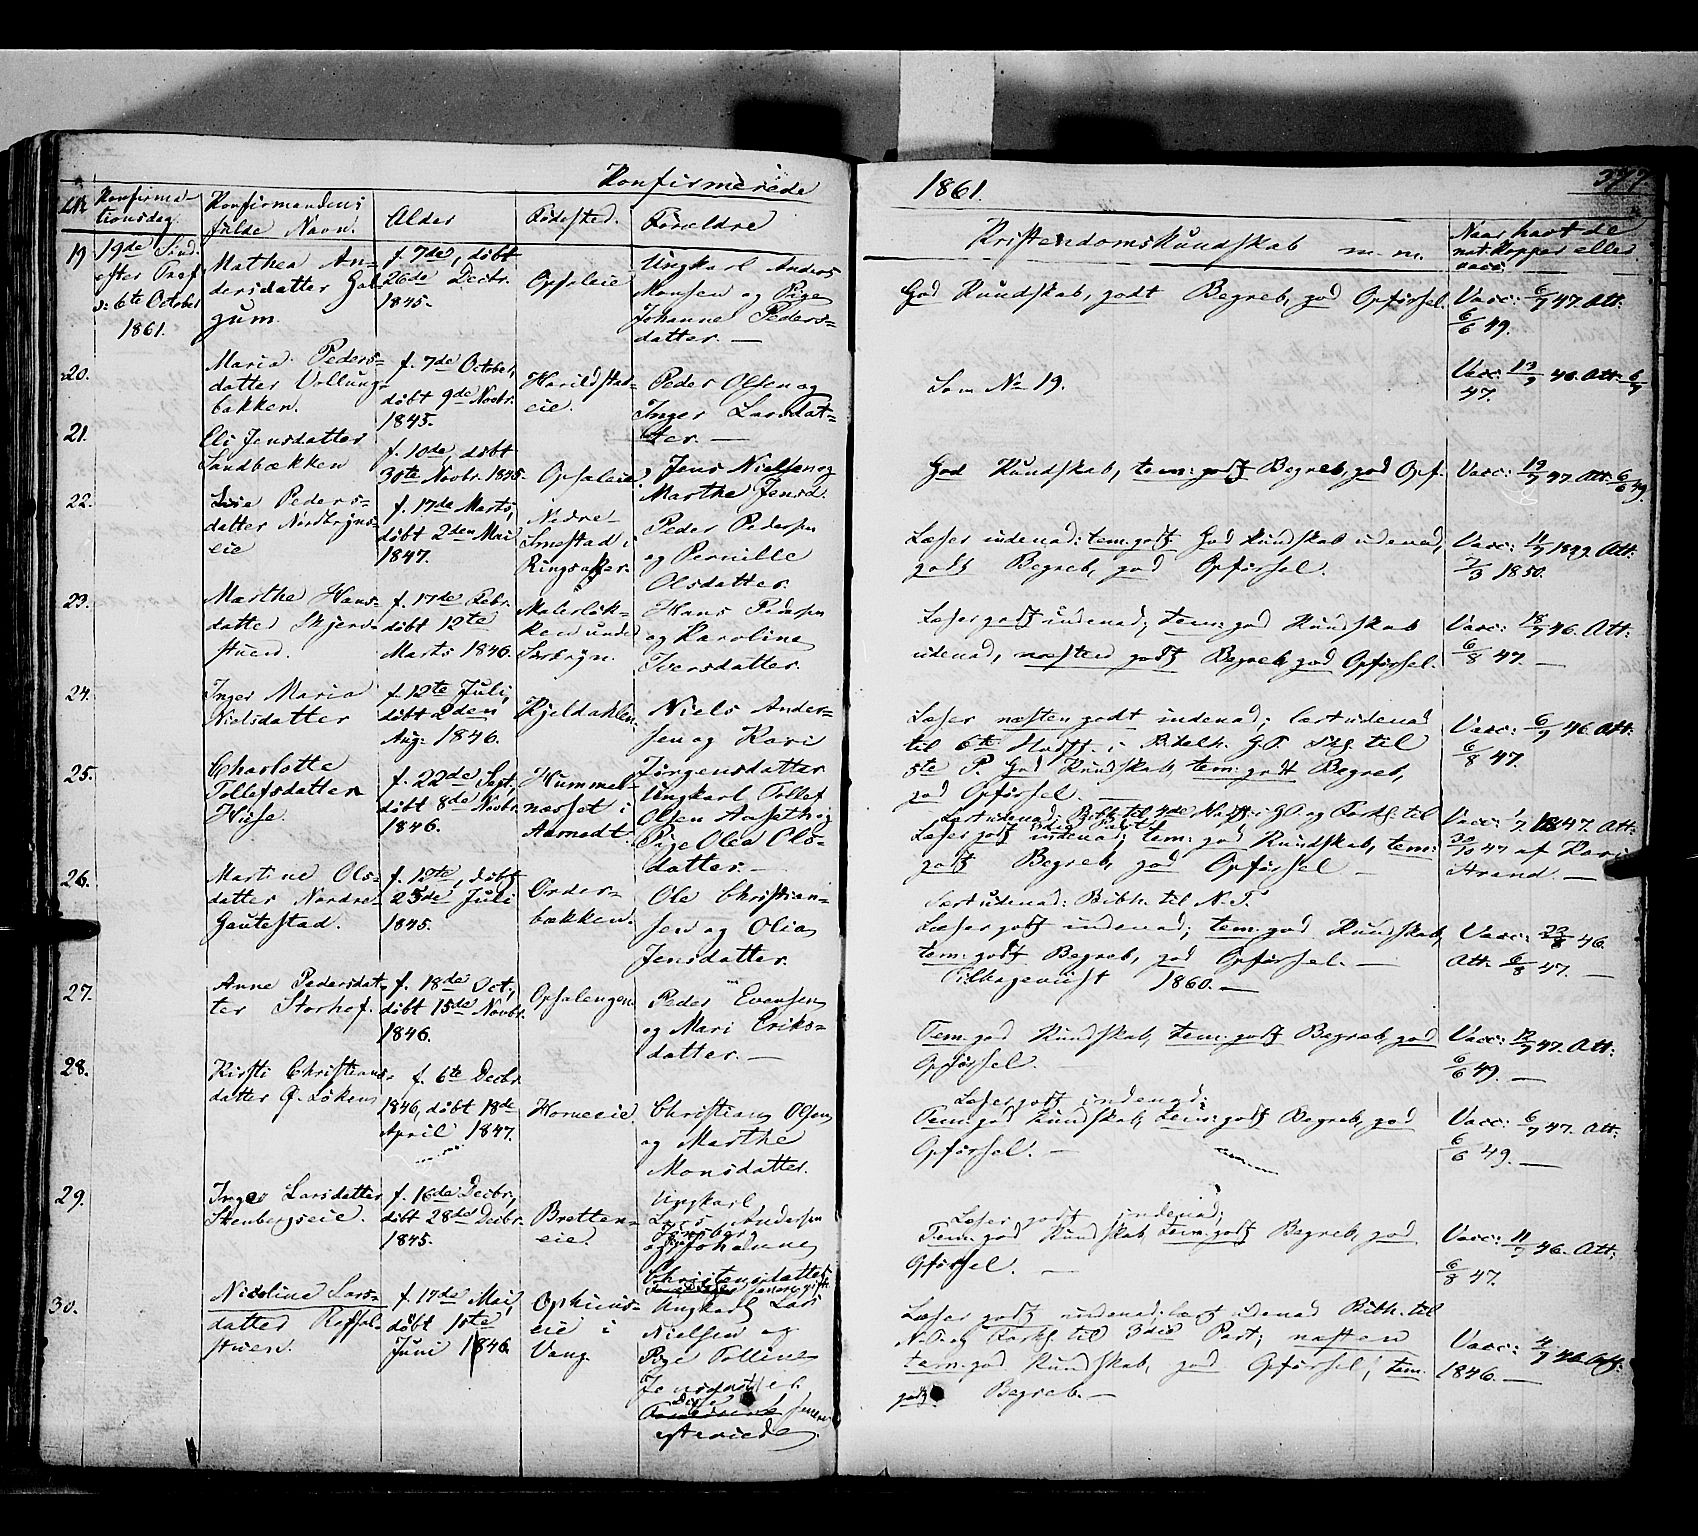 Konfirmerede
1861.
377
No
Konfirma-
tionsdag.
Konfirmandens
fulde Navn.
Alder
Fødested.
Forældre
Kristendomskundskab m.m.
Naar havt de
nat. Kopper eller
vacc.
19
19de Sønd.
efter Tref.
6te October
1861.
Mathea An-
dersdatter Gal-
zum.
f. 7de, døbt
26de Decbr.
1845.
Opsaleie
Ungkarl Anders
Monsen og Pige
Johanne Peders-
datter. —
God Kundskab, godt Begreb, god Opførsel.
Vacc: 6/7 47. Att:
6/6 49.
20.
Maria Peders-
datter Vollung-
bakken.
f. 7de October,
døbt 9de Novbr.
1845.
Harildstad-
eie.
Peder Olsen og
Inger Larsdat-
ter. —
Som No 19.
47.
21.
Eli Jensdatter
Sandbækken
f. 10de, døbt
30te Novbr. 1845.
Opsaleie
Jens Nielsen og
Marthe Jensd.
God Kundskab, tem: godt Begreb, god Opf.
Vacc: 19/7 47. Att: 6/6 49.
22.
Lisie Peders-
datter Nordbryns-
eie
f. 17de Marts,
døbt 2den Mai
1847.
Nedre-
Smestad i
Ringsaker.
Peder Pedersen
og Pernille
Olsdatter.
Læser indenad: tem: godt God Kundskab udenad,
godt Begreb, god Opførsel.
1850.
23.
Marthe Hans-
datter Skjerv-
stuen.
f. 17de Febr.
døbt 12te
Marts 1846.
Malerløk-
ken under
Sørbryn.
Hans Pedersen
og Karoline
Iversdatter.
Læser godt indenad; tem: god Kundskab
udenad, næsten godt Begreb, god Opførsel.
Vacc: 18/7 46. Att:
6/8 47. —
24.
Inger Maria
Nielsdatter
f. 12te Juli,
døbt 2den
Aug. 1846.
Kjeldahlen.
Niels Ander-
sen og Kari
Jørgensdatter
Læser næsten godt indenad; lært udenad
til 6te i Bibelh. G.T. til
5te P. God Kundskab, tem: godt Begreb,
god Opførsel. —
Vacc: 6/7 46 Att:
6/8 47.
25.
Charlotte
Tollefsdatter
Huse.
f. 22de Sept,
døbt 8de Novbr.
1846.
Hummel-
næsset i
Aamodt.
Ungkarl Tollef
Olsen Aasethrig
Pige Olea Ols-
datter. —
Lært udenad: Bibh. til 4de i G.T. og Forkl. til
3die Part.
Læser godt indenad; tem: god Kundskab, tem:
godt Begreb, god Opførsel —
1847. Att:
47 af Kari
Strand. —
26.
Martine Ols-
datter Nordre-
Gautestad.
f. 12te, døbt
25de Juli
1845.
Order-
bækken.
Ole Christian-
sen og Olia
Jensdatter
Lært udenad: Bibh. til N.T.
Læser godt indenad; tem: god Kundskab,
tem: godt Begreb, god Opførsel. —
Tilbageviist 1860. —
Vacc: 22/8 46.
Att: 6/8 47. —
27.
Anne Pedersdat-
ter Storhof.
f. 18de Oct.,
døbt 15de Novbr.
1846.
Opsalengen
Peder Evensen
og Mari Eriks-
datter. —
Tem: god Kundskab, tem: godt Begreb, god
Opførsel. —
Vacc: 12/7 47. Att:
6/6 49. —
28.
Kirsti Christians-
datter G. Løken
f. 6te Decbr.
1846, døbt 18de
April 1847.
Horneeie.
Christian Olsen
og Marthe
Monsdatter.
Læser godt indenad;
Tem: god Kundskab, tem: godt Begreb, god
Opførsel. —
Vacc: 6/7 47. Att:
6/6 49. —
29.
Inger Larsdatter
Stenbergseie.
f. 16de Decbr,
døbt 28de Decbr.
1845.
Bretten-
eie.
Ungkarl
Lars Andersen
og Johanne
Christensdatter
Læser godt indenad;
Tem: god Kundskab, tem: godt Begreb, god
Opførsel. —
Vacc: 11/7 46. Att:
6/8 47.
30.
Nicoline Lars-
datter
stuen.
f. 17de Mai,
døbt 10te
Juni 1846
Ophuus-
eie i
Vang.
Ungkarl Lars
Nielsen og
Pige Polline
Jensdatter.
Læser godt indenad; lært udenad Bibh. til
N.T. og Forkl. til 3die Part; næsten
tem: god Kundskab, god Opførsel, tem:
godt Begreb. —
1846. —